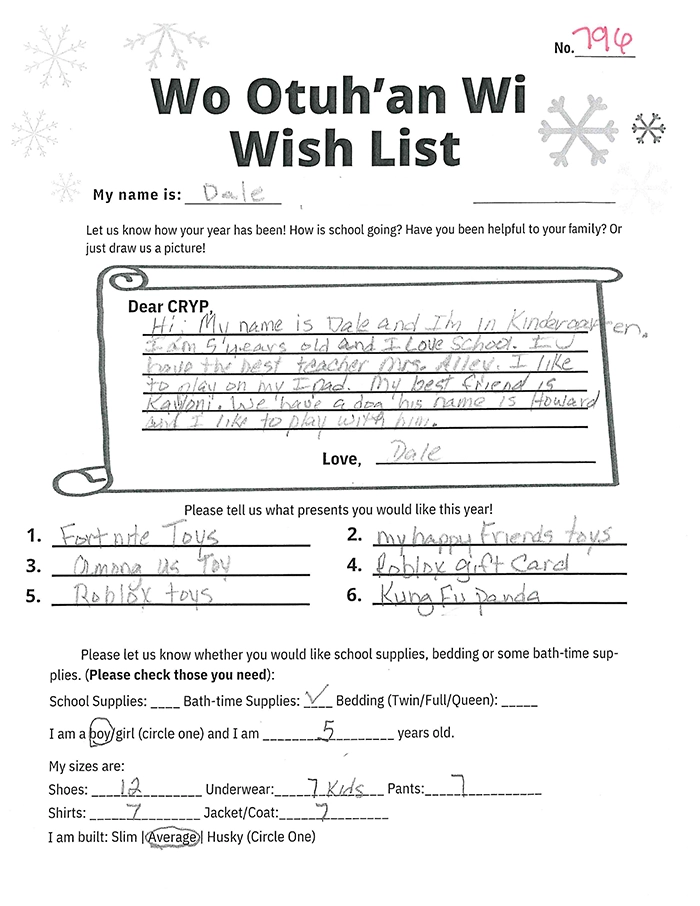 No. 796
Wo Otuh'an Wi
Wish List
My name is: Dale
Let us know how your year has been! How is school going? Have you been helpful to your family? Or
just draw us a picture!
Dear CRYP,
Hi. My name is Dale and I'm in Kindergarten.
I am 5 years old and I Love School. I
have the best teacher Mrs. Alley. I like
to play on my Ipad. My best friend is
We have a dog his name is Howard
and I like to play with him.
Love, Dale
Please tell us what presents you would like this year!
1. Fortnite Toys 2. my happy Friends toys
3. Among us Toy 4. Roblox gift Card
5. Roblox toys 6. Kung Fu panda
Please let us know whether you would like school supplies, bedding or some bath-time sup-
plies. (Please check those you need):
School Supplies: ____ Bath-time Supplies: ✓ Bedding (Twin/Full/Queen): _____
I am a boy/girl (circle one) and I am 5 years old.
My sizes are:
Shoes: 12 Underwear: 7 Kids Pants: 7
Shirts: 7 Jacket/Coat: 7
I am built: Slim | Average | Husky (Circle One)